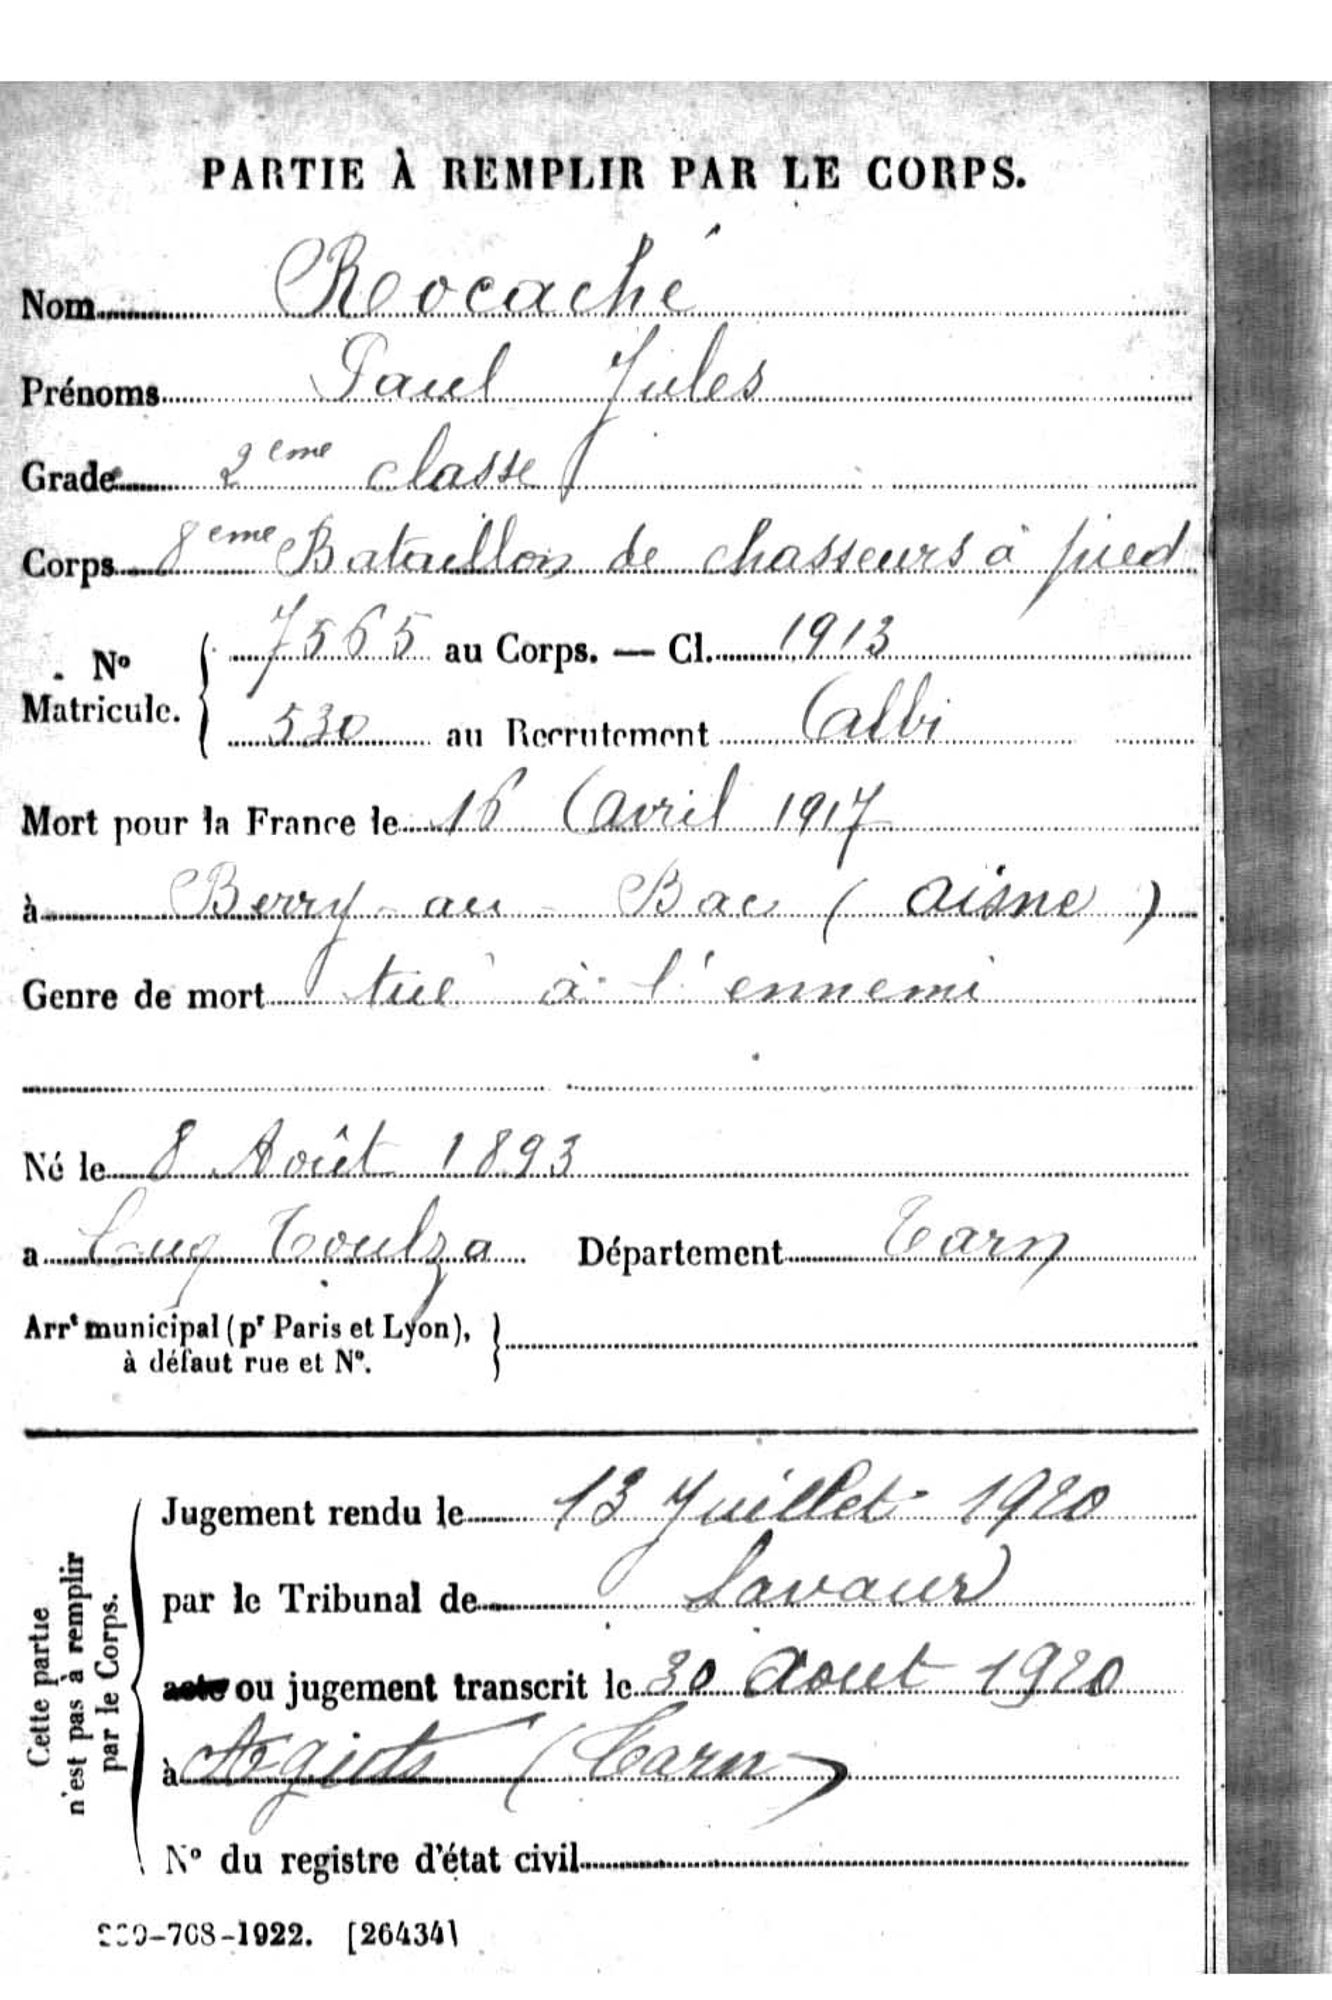 PARTIE À REMPLIR PAR LE CORPS.
Nom Rocaché
Prénoms Paul Jules
Grade 2eme classe
Corps 8eme Bataillon de chasseurs à pied
No Matricule. { 7565 au Corps. — Cl. 1913
530 au Recrutement Albi
Mort pour la France le 16 Avril 1917
à Berry-au-Bac (Aisne)
Genre de mort tué à l'ennemi
Né le 8 Août 1893
a Cuq Toulza Département Tarn
Arrt municipal (pr Paris et Lyon), }
à défaut rue et No.
Cette partie n'est pas à remplir par le Corps.
Jugement rendu le 13 Juillet 1920
par le Tribunal de Lavaur
acte ou jugement transcrit le 30 Aout 1920
à (Tarn)
No du registre d'état civil
-708-1922. [26434]